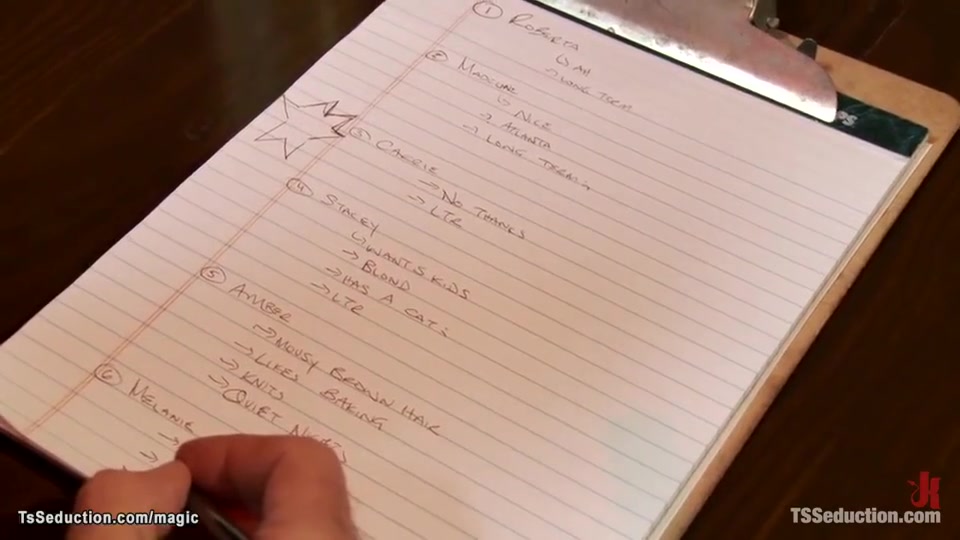 ① ROBERTA
↳ AH
→ LONG TERM
② MADELINE
↳ NICE
→ ATLANTA
→ LONG TERM
③ CARRIE
→ NO THANKS
→ LTR
④ STACEY
↳ WANTS KIDS
→ BLOND
→ HAS A CAT
→ LTR
⑤ AMBER
→ MOUSY BROWN HAIR
→ LIKES BAKING
→ KNITS
→ QUIET
⑥ MELANIE
TsSeduction.com/magic
TSSeduction.com